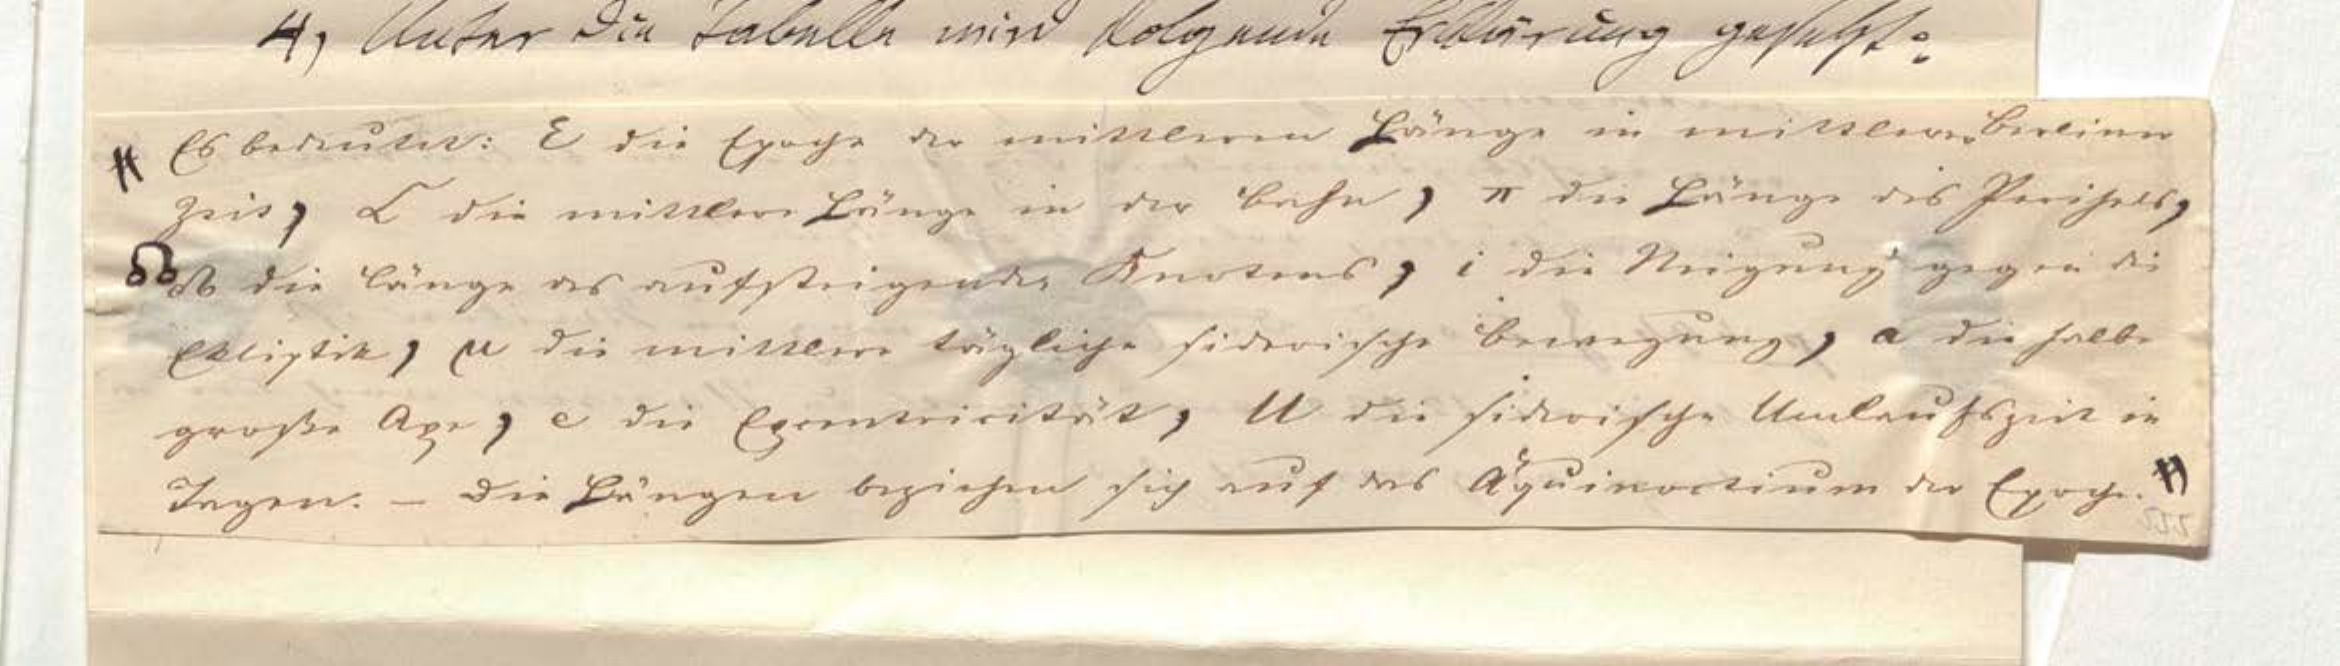 4, Unter die Tabelle wird folgende Erklärung gesetzt:
# Es bedeutet: E die Epoche der mittleren Länge in mittlerer Berliner
Zeit, L die mittlere Länge in der Bahn, π die Länge des Perihels,
☊ ☊ die Länge des aufsteigenden Knotens, i die Neigung gegen die
Ekliptik, μ die mittlere tägliche siderische Bewegung, a die halbe
große Axe, e die Excentricität, U die siderische Umlaufszeit in
Tagen. – Die Längen beziehen sich auf das Äquinoctium der Epoche. #
222